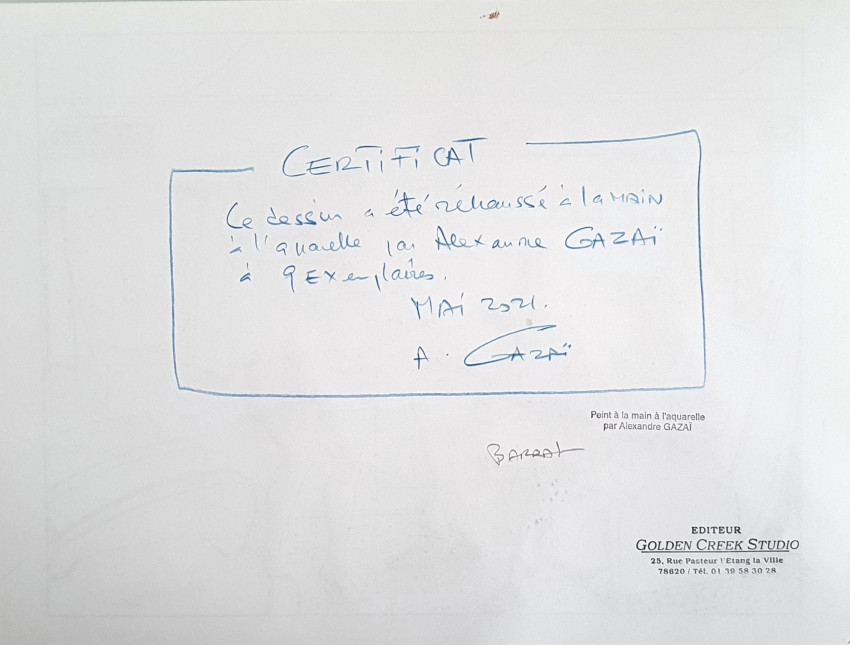 CERTIFICAT
Ce dessin a été réhaussé à la MAIN
à l'aquarelle par Alexandre GAZAÏ
à 9 EXemplaires.
MAI 2021.
A. GAZAÏ
Peint à la main à l'aquarelle
par Alexandre GAZAÏ
BARRAL
EDITEUR
GOLDEN CREEK STUDIO
25, Rue Pasteur l'Etang la Ville
78620 / Tél. 01 39 58 30 28